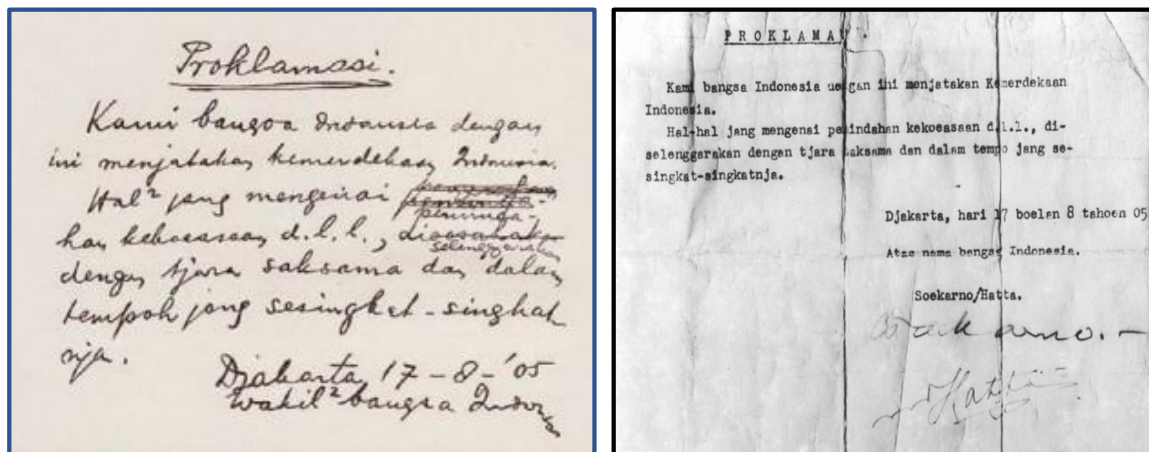 Proklamasi.
Kami bangsa Indonesia dengan
ini menjatakan kemerdekaan Indonesia.
Hal² jang mengenai
peminda-
han kekoeasaan d.l.l., di
selenggarakan
dengan tjara saksama dan dalam
tempoh jang sesingkat-singkat
nja.
Djakarta 17 - 8 - '05
Wakil² bangsa Indonesia
P R O K L A M A
Kami bangsa Indonesia dengan ini menjatakan Kemerdekaan
Indonesia.
Hal-hal jang mengenai pemindahan kekoeasaan d.l.l., di-
selenggarakan dengan tjara saksama dan dalam tempo jang se-
singkat-singkatnja.
Djakarta, hari 17 boelan 8 tahoen 05
Atas nama bangsa Indonesia.
Soekarno/Hatta.
Soekarno.-
Hatta